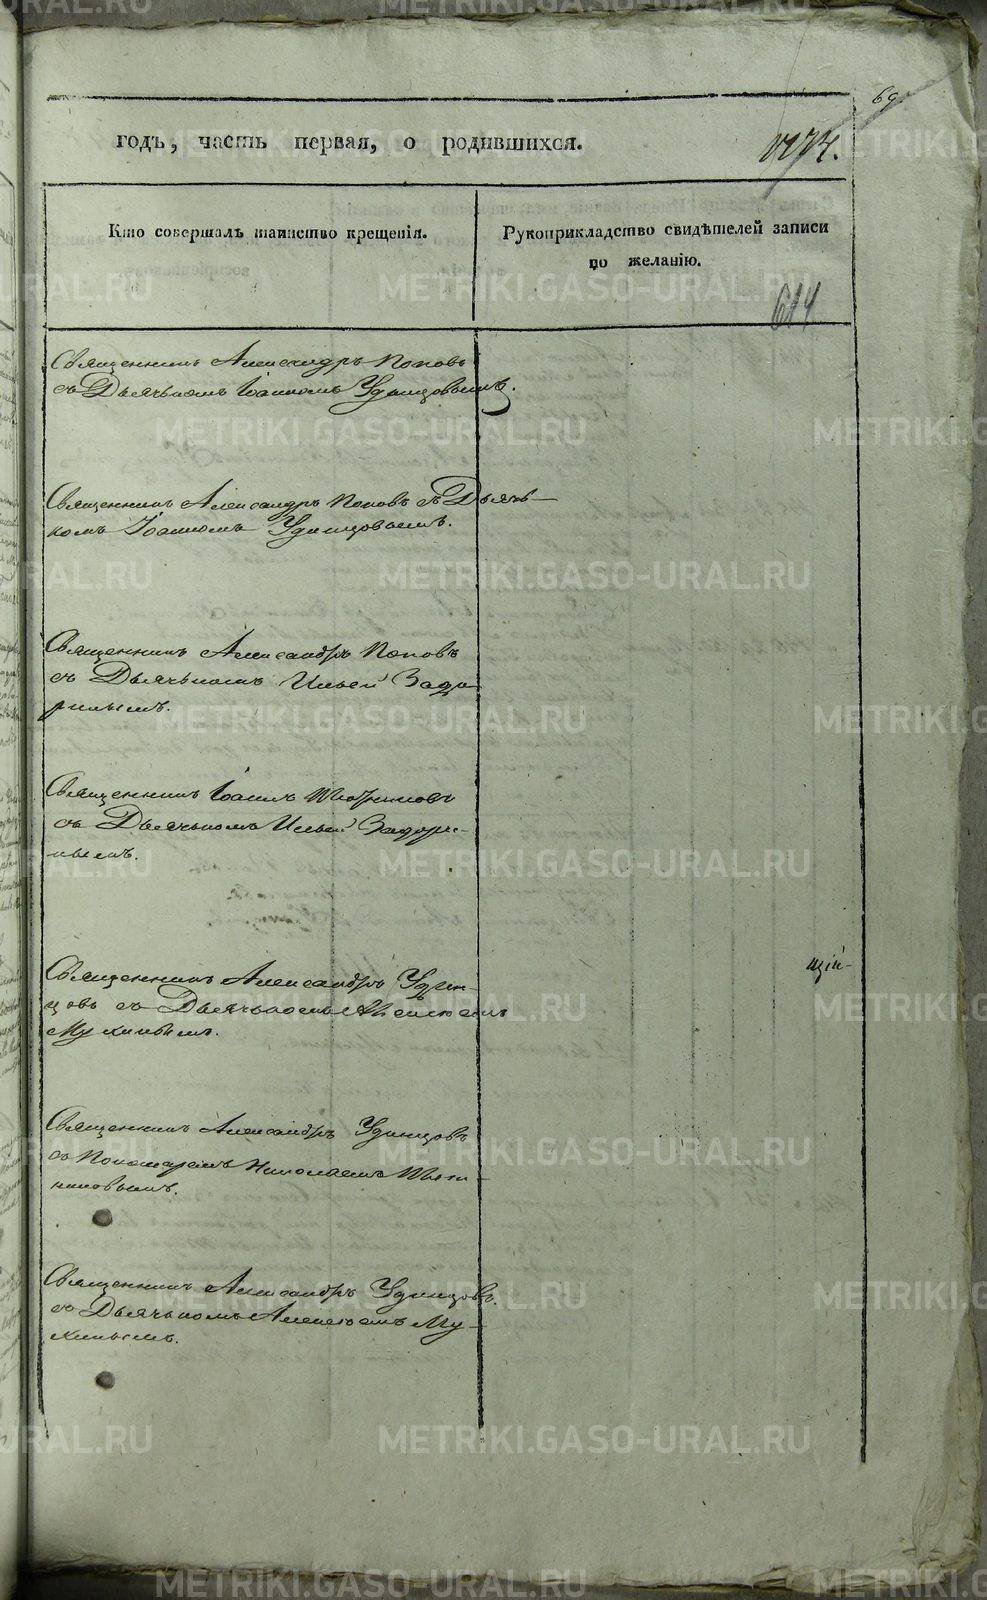 69
годъ, часть первая, о родившихся.
1174.
Кто совершалъ таинство крещенія.
Рукоприкладство свидѣтелей записи
по желанію.
614
Священникъ Александръ Поповъ
съ Дьячькомъ Іоанномъ Удинцовымъ.
Священникъ Александръ Поповъ съ Дьячь-
комъ Іоанномъ Удинцовымъ.
Священникъ Александръ Поповъ
съ Дьячькомъ Ильей Задо-
ринымъ.
Священникъ Іоаннъ
съ Дьячькомъ Ильей Задори-
нымъ.
Священникъ Александръ Удин-
цовъ съ Дьячькомъ Алексѣемъ
Мухинымъ.
щій-
Священникъ Александръ Удинцовъ
съ Пономаремъ Николаемъ
Священникъ Александръ Удинцовъ
съ Дьячькомъ Алексѣемъ Му-
хинымъ.
METRIKI.GASO-URAL.RU